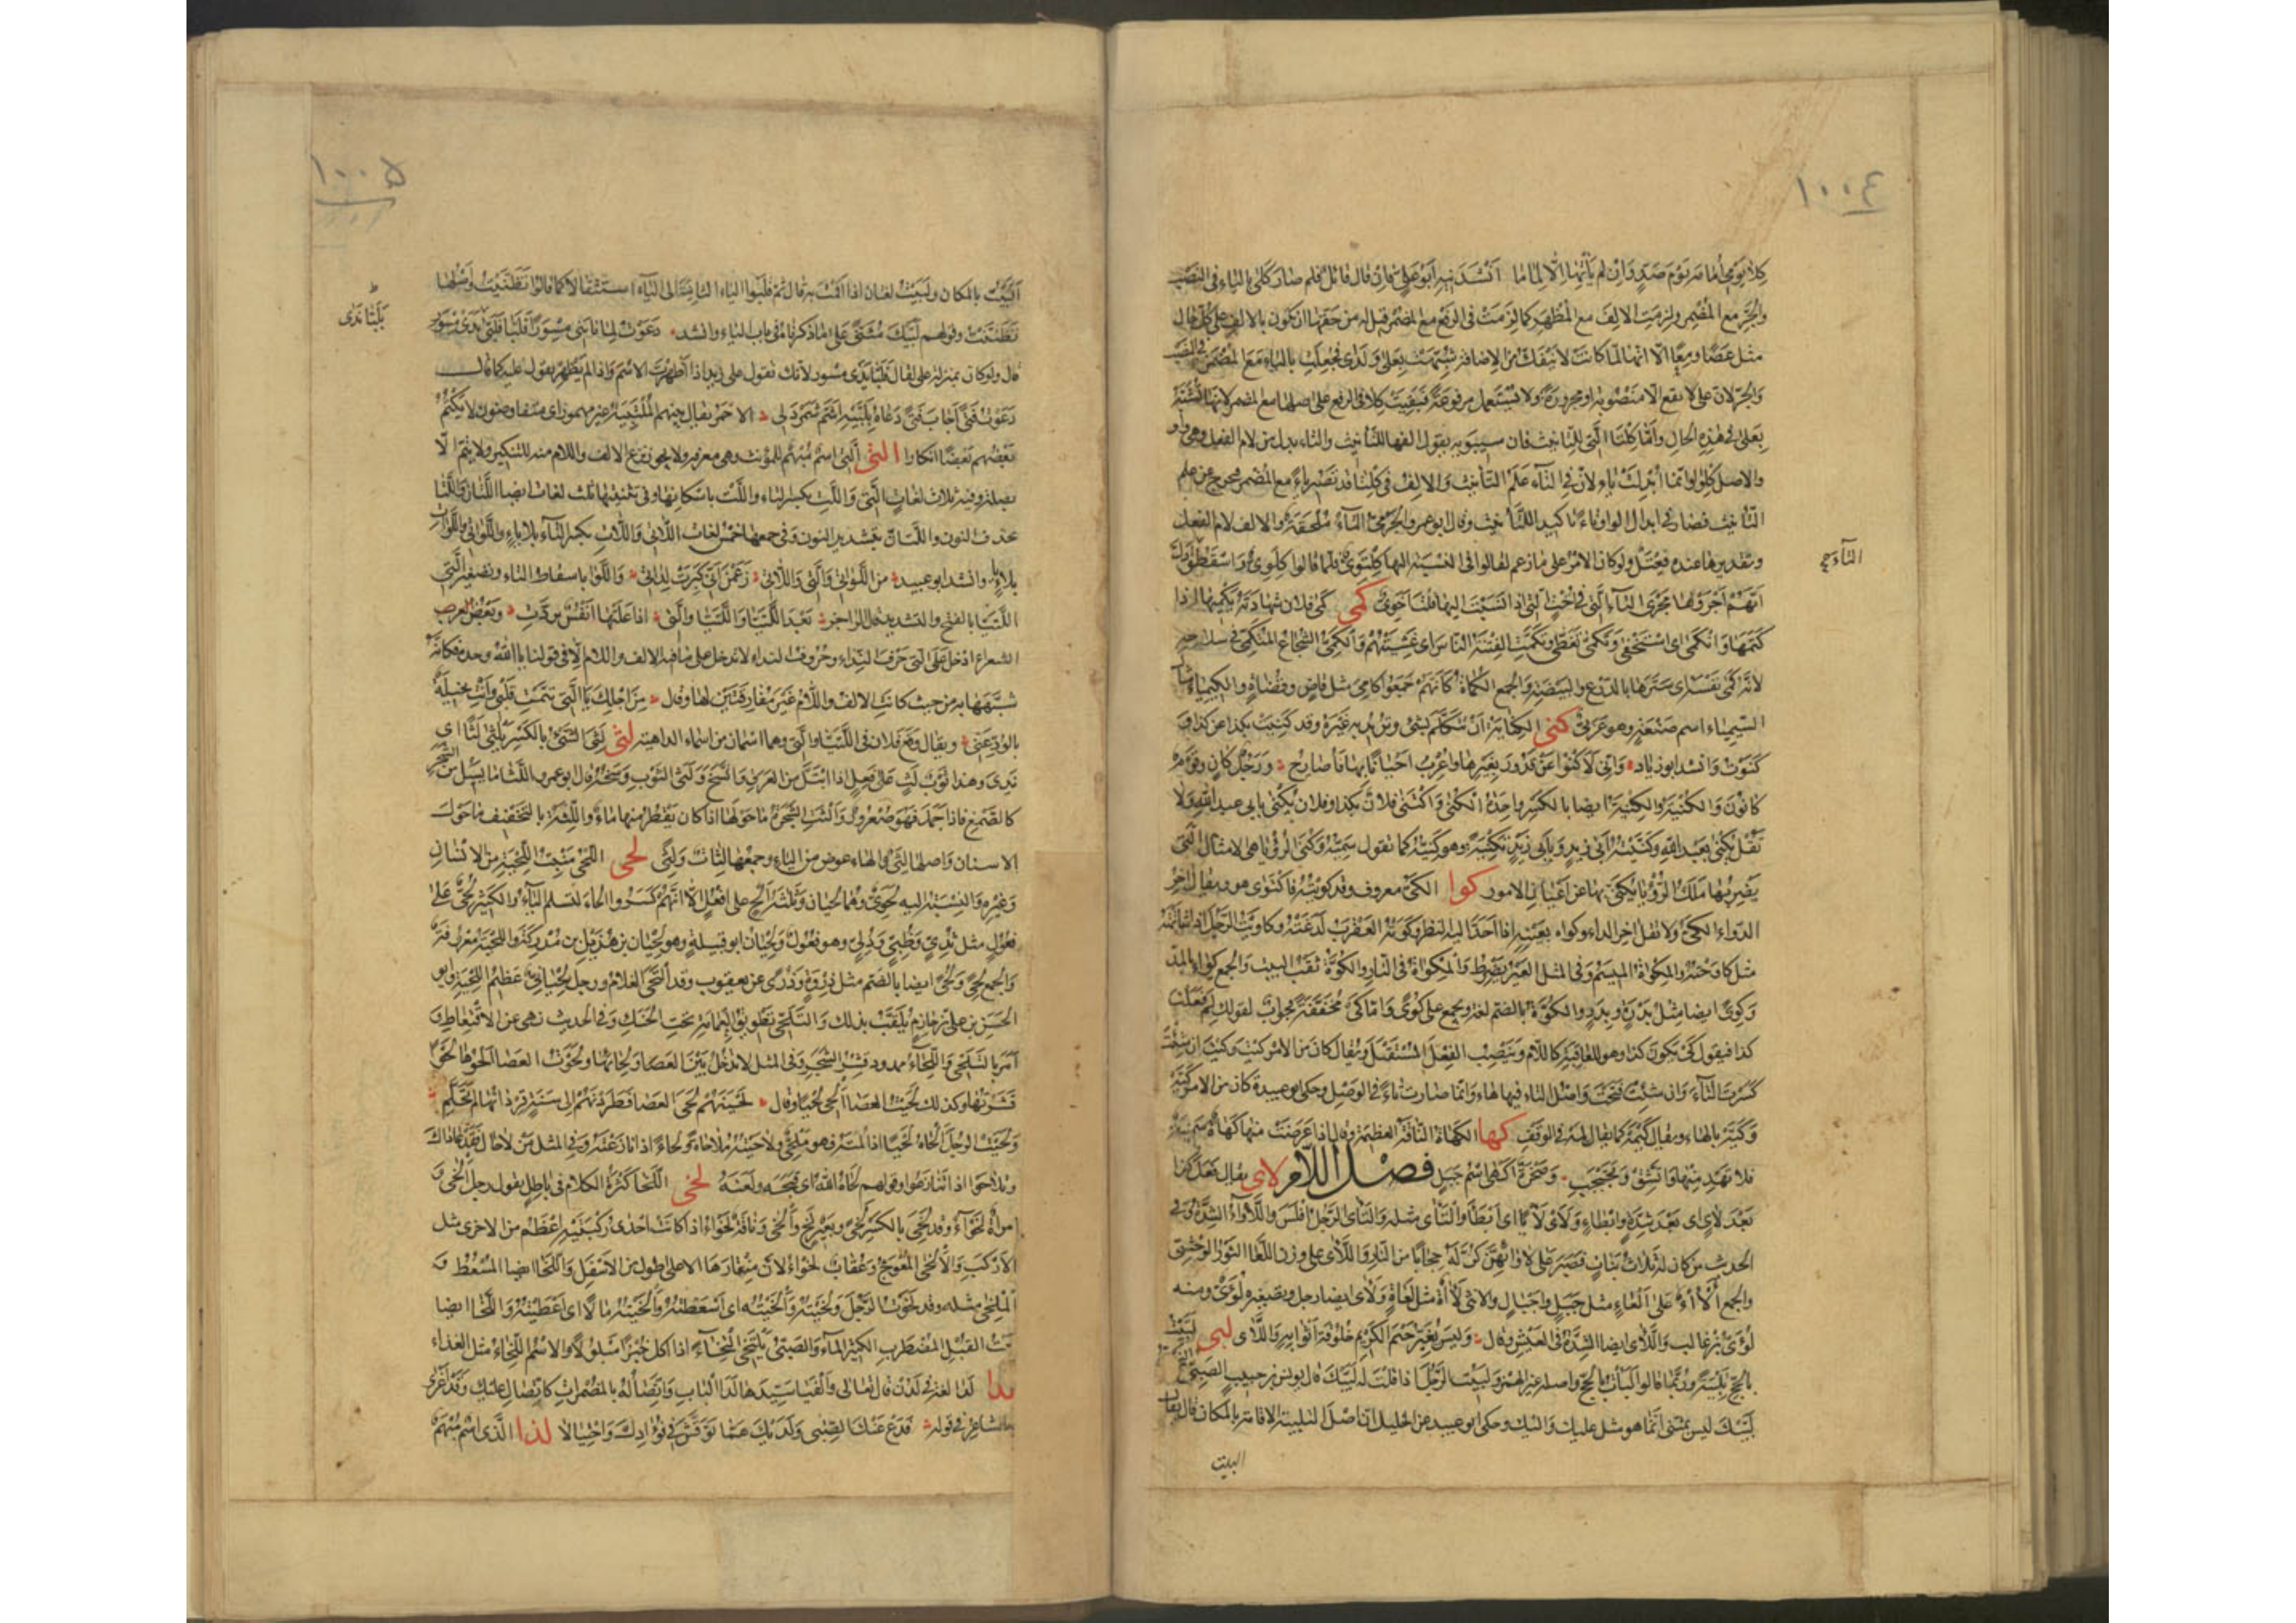 ١٠٠٤
كلا يومي أمامة يوم صد وان لم نأتها الا لماما انشدنيه ابو علي فان قال قائل فلم صار كلا بالياء في النصب
والجر مع المضمر ولزمت الالف مع المظهر كما لزمت في الرفع مع المضمر قيل له من حقها ان تكون بالالف على كل حال
مثل عصا ومعا الا انها لما كانت لا تنفك من الاضافة شبهت بعلى ولدى فجعلت بالياء مع المضمر في النصب
والجر لان على لا تقع الا منصوبة او مجرورة ولا تستعمل مرفوعة فبقيت كلا في الرفع على اصلها مع المضمر لانها لم تشبه
بعلى في هذه الحال واما كلتا التي للتانيث فان سيبويه يقول الفها للتانيث والتاء بدل من لام الفعل وهي واو
والاصل كلوا وانما ابدلت تاء لان في التاء علم التأنيث والالف في كلتا قد تصير ياء مع المضمر فتخرج عن علم
التأنيث فصار في ابدال الواو تاء تاكيد للتأنيث وقال ابو عمر الجرمي التاء ملحقة والالف لام الفعل
وتقديرها عنده فعتل ولو كان الامر على ما زعم لقالوا في النسبة اليها كلتوي فلما قالوا كلوي واسقطوا التاء دل
انهم اجروها مجرى التاء التي في اخت التي اذا نسبت اليها قلت اخوي كمى كمى فلان شهادته يكميها اذا
كتمها وانكمى اي استخفى وتكمى تغطى وتكمت الفتنة الناس اي غشيتهم والكمي الشجاع المتكمي في سلاحه
لانه كمى نفسه اي سترها بالدرع والبيضة والجمع الكماة كانهم جمعوا كامي مثل قاض وقضاة والكيمياء مثال
السيمياء اسم صنعة وهو عربي كنى الكناية ان تتكلم بشئ وتريد به غيره وقد كنيت بكذا عن كذا و
كنوت وانشد ابو زياد واني لاكنو عن قذور بغيرها واعرب احيانا بها فاصارح ورجل كان وقوم
كانون والكنية والكنية ايضا بالكسر واحدة الكنى واكتنى فلان بكذا وفلان يكنى بابي عبد الله ولا
تقل يكنى بعبد الله وكنيته ابا زيد وبابي زيد تكنية وهو كنيه كما تقول سميه وكنى الرؤيا هي الامثال التي
يضربها ملك الرؤيا يكنى بها عن اعيان الامور كوا الكي معروف وقد كويته فاكتوى هو ويقال آخر
الدواء الكي ولا تقل آخر الداء وكواه بعينه اذا احد اليه النظر وكوته العقرب لدغته وكاويت الرجل اذا شاتمته
مثل كاوحته والمكواة الميسم وفي المثل العير يضرط والمكواة في النار والكوة ثقب البيت والجمع كواء بالمد
وكوى ايضا مثل بدرة وبدر والكوة بالضم لغة ويجمع على كوى واما كي مخففة فجواب لقولك لم فعلت
كذا فيقول كي تكون كذا وهو للعاقبة كاللام وينصب الفعل المستقبل ويقال كان من الامر كيت وكيت ان شئت
كسرت التاء وان شئت فتحت واصل التاء فيها هاء وانما صارت تاء في الوصل وحكى ابو عبيدة كان من الامر كيه
وكيه بالهاء ويقال كيمه كما يقال لمه في الوقف كها الكهاة الناقة العظيمة وقال اذا عرضت منها كهاة سمينة
فلا تهد منها واتشق وتجبجب وصخرة اكهى اسم جبل فصل اللام لاى يقال فعل كذا
بعد لأي اي بعد شدة وابطاء ولأى لأيا اي ابطأ والتأى مثله والتأى الرجل افلس واللأواء الشدة وفي
الحديث من كان له ثلاث بنات فصبر على لأوائهن كن له حجابا من النار واللأى على وزن اللعا الثور الوحشي
والجمع ألآء على العاء مثل جبل واجبال والانثى لأة مثل لعاة ولأى ايضا رجل وتصغيره لؤي ومنه
لؤي بن غالب واللأى ايضا الشدة في العيش وقال وليس يغير خيم الكريم خلوقة اثوابه واللأى لبى لبيت
بالحج تلبية وربما قالوا لبأت بالحج واصله غير الهمز ولبيت الرجل اذا قلت له لبيك قال يونس بن حبيب الضبي
لبيك ليس بمثنى انما هو مثل عليك واليك وحكى ابو عبيد عن الخليل ان اصل التلبية الاقامة بالمكان قال يقال
البيت
١٠٠٥
البيت بالمكان ولبيت لغتان اذا اقمت به قال ثم قلبوا الباء الثانية الى الياء استثقالا كما قالوا تظنيت واصلها
تظننت وقولهم لبيك مثنى على ما ذكرناه في باب الباء وانشد دعوت لما نابني مسورا فلبا فلبي يدي مسور
قال ولو كان بمنزلة على لقال فلبا يدي مسور لانك تقول على زيد اذا اظهرت الاسم واذا لم تظهر تقول عليه كما قال
دعوت فتى اجاب فتى دعاه بلبيه اشم شمردلي الاحمر يقال بينهم الملتبية غير مهموز اي متفاوضون لا يكتم
بعضهم بعضا انكارا التى التي اسم مبهم للمؤنث وهي معرفة ولا يجوز نزع الالف واللام منه للتنكير ولا يتم الا
بصلة وفيه ثلاث لغات التي واللت بكسر التاء واللت باسكانها وفي تثنيتها ثلث لغات ايضا اللتان واللتا
بحذف النون واللتان بتشديد النون وفي جمعها خمس لغات اللاتي واللات بكسر التاء بلا ياء واللواتي واللوات
بلا ياء وانشد ابو عبيد من اللواتي والتي واللاتي زعمن اني كبرت لداتي واللوا باسقاط التاء وتصغير التي
اللتيا بالفتح والتشديد قال الراجز بعد اللتيا واللتيا والتي اذا علتها انفس تردت وبعض العرب
الشعراء ادخل على التي حرف النداء وحروف النداء لا تدخل على ما فيه الالف واللام الا في قولنا يا الله وحده فكانه
شبهها به من حيث كانت الالف واللام غير مفارقتين لها وقال من اجلك يا التي تيمت قلبي وانت بخيلة
بالود عني ويقال وقع فلان في اللتيا والتي وهما اسمان من اسماء الداهية لثى لثي الشئ بالكسر يلثى لثا اي
ندي وهذا ثوب لث على فعل اذا ابتل من العرق واتسخ ولثى الثوب وسخه قال ابو عمرو اللثا ما يسيل من الشجر
كالصمغ فاذا جمد فهو صعرور والثت الشجرة ما حولها اذا كان يقطر منها ماء واللثة بالتخفيف ما حول
الاسنان واصلها لثي والهاء عوض من الياء وجمعها لثات ولثى لحى اللحي منبت اللحية من الانسان
وغيره والنسبة اليه لحوي وهما لحيان وثلثة الح على افعل الا انهم كسروا الحاء لتسلم الياء والكثير لحي على
فعول مثل ثدي وظبي ودلي وهو فعول ولحيان ابو قبيلة وهو لحيان بن هذيل بن مدركة واللحية معروفة
والجمع لحى ولحى ايضا بالضم مثل ذروة وذرى عن يعقوب وقد التحى الغلام ورجل لحياني عظيم اللحية وابو
الحسن بن علي بن خازم يلقب بذلك والتلحي تطويق العمامة تحت الحنك وفي الحديث نهى عن الاقتعاط و
امر بالتلحي واللحاء ممدود قشر الشجر وفي المثل لا تدخل بين العصا ولحائها ولحوت العصا الحوها لحوا
قشرتها وكذلك لحيت العصا الحي لحيا وقال لحينهم لحي العصا فطردنهم الى سنة قردانها لم تحلم
ولحيت الرجل الحاه لحيا اذا لمته فهو ملحي ولاحيته ملاحاة ولحاء اذا نازعته وفي المثل من لاحاك فقد عاداك
وتلاحوا اذا تنازعوا وقولهم لحاه الله اي قبحه ولعنه لخى اللخا كثرة الكلام في باطل يقول رجل الخى و
امراة لخواء وقد لخي بالكسر لخى وبعير لخ والخى وناقة لخواء اذا كانت احدى ركبتيه اعظم من الاخرى مثل
الاركب والالخى المعوج وعقاب لخواء لان منقارها الاعلى اطول من الاسفل واللخا ايضا المسعط و
الملخى مثله وقد لخوت الرجل ولخيته والخيته اي اسعطته والخيته مالا اي اعطيته واللخا ايضا
نعت القبل المضطرب الكثير الماء والصبي يلتخي التخاء اذا اكل خبزا مبلولا والاسم اللخاء مثل الغذاء
لدا لدا لغة في لدن قال تعالى والفيا سيدها لدا الباب واتصاله بالمضمرات كاتصال عليك وقد اغرى
به الشاعر في قوله فدع عنك الصبى ولديك هما توقش في فؤادك واختيالا لذا الذي اسم مبهم